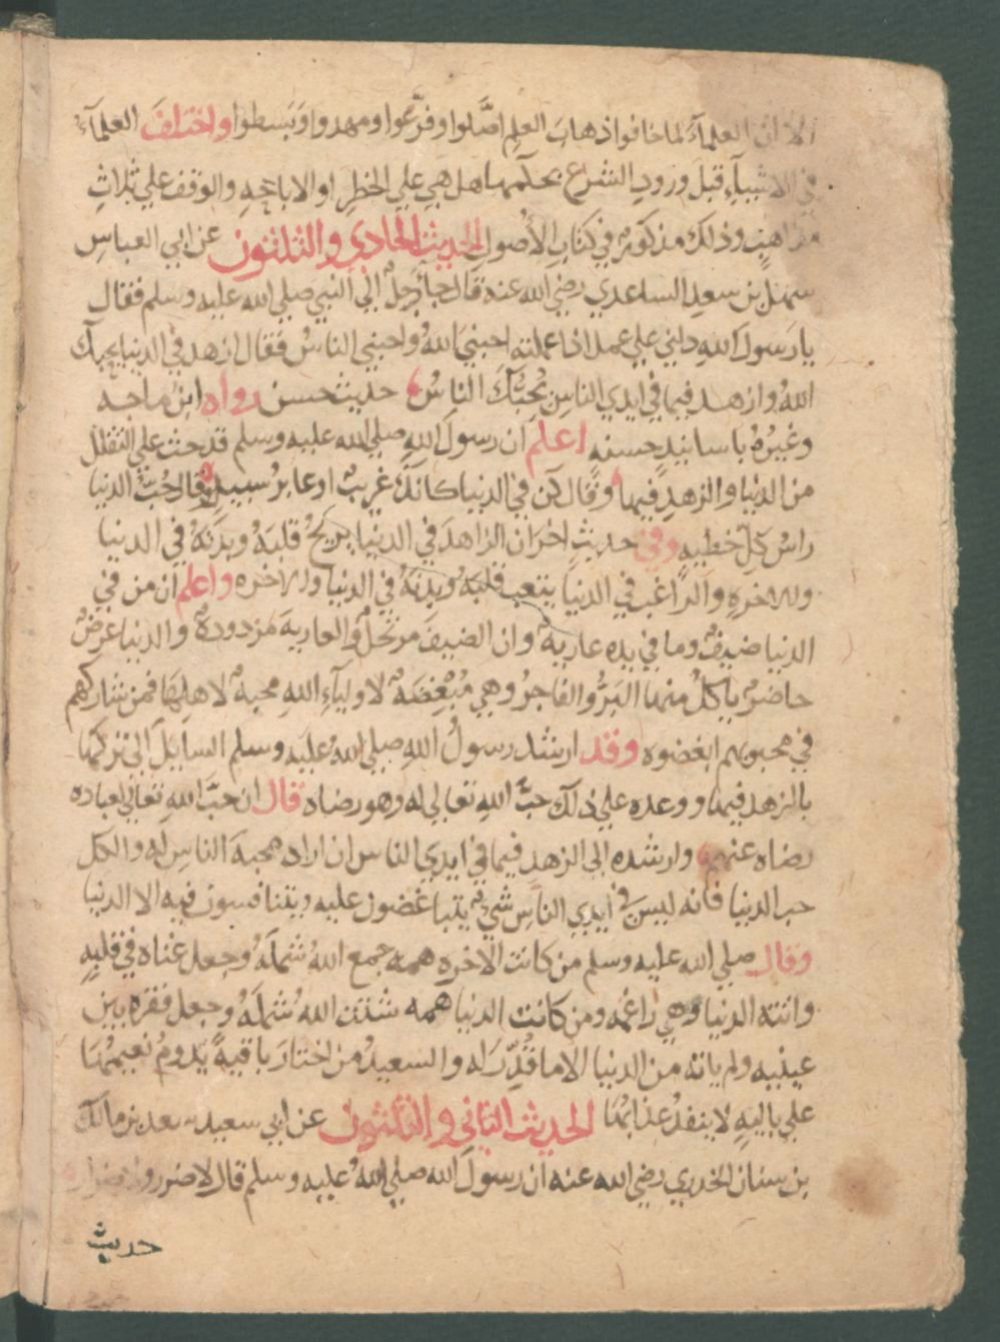 الا ان العلماءَ لما خافوا ذهابَ العلمِ اصَّلوا وفرَّعوا ومهدوا وبَسطوا واختلفَ العلمآءُ
في الاشيآءِ قبلَ ورودِ الشرعِ بحكمها هل هي علي الحظرِ او الاباحةِ والوقف علي ثلاثِ
مذاهبَ وذلك مذكورٌ في كتابِ الأصولِ الحديث الحادي والثلثون عن ابي العباسِ
سهلِ بن سعدِ الساعدي رضي الله عنه قال جاء رجلٌ الي النبي صلي الله عليه وسلم فقال
يا رسول اللهِ دلني علي عملٍ اذا عملته احبنيَ اللهُ واحبني الناسُ فقال ازهد في الدنيا يحبك
اللهُ وازهد فيما في ايدي الناسِ يُحبُّكَ الناسُ حديث حسن رواه ابن ماجه
وغيرُهُ باسانيدٍ حسنهٍ اعلم ان رسولَ اللهِ صلي الله عليه وسلم قد حث علي التقلل
من الدنيا والزهدِ فيها وقال كن في الدنيا كانك غريبٌ او عابر سبيلٍ وقال حُبُّ الدنيا
راسُ كلِّ خطيهٍ وفي حديثٍ اخر ان الزاهدَ في الدنيا يريحُ قلبَهُ وبدنَهُ في الدنيا
والاخرهِ والراغب في الدنيا يتعب قلبَهُ وبدنَهُ في الدنيا والاخره واعلم ان من في
الدنيا ضيفٌ وما في يده عاريةٌ وان الضيفَ مرتحلٌ والعاريه مردودةٌ والدنيا عرضٌ
حاضرٌ ياكلُ منها البَرُّ والفاجرُ وهي مُبْغضَةٌ لاوليآءِ اللهِ محببةٌ لاهلِهَا فمن شاركهم
في محبوبهم ابغضوه وقد ارشد رسولُ اللهِ صلي اللهُ عليه وسلم السايلَ الى تركها
بالزهد فيها ووعده علي ذلك حبَّ اللهِ تعالي له وهو رضاه قال ان حبَّ اللهِ تعالي لعباده
رضاه عنهم وارشده الي الزهد فيما في ايدي الناس ان اراد محبةَ الناسِ له والكل
حب الدنيا فانه ليسَ في ايدي الناسِ شيٌ يتباغضون عليه ويتنافسون فيه الا الدنيا
وقال صلي الله عليه وسلم من كانت الاخرهِ همه جمع اللهُ شملَهُ وجعل غناه في قلبهِ
واتته الدنيا وهي راغمه ومن كانت الدنيا همه شتت اللهُ شملَهُ وجعل فقره بين
عينيه ولم ياته من الدنيا الا ما قُدِّرَ له والسعيدُ من اختارَ باقيةً يدومُ نعيمُهَا
علي باليهِ لا ينفدُ عذابُها الحديث الثاني والثلثون عن ابي سعيد سعد بن مالك
بن سنان الخدري رضي الله عنه ان رسولَ الله صلي اللهُ عليه وسلم قال لا ضرر ولا ضرار
حديث